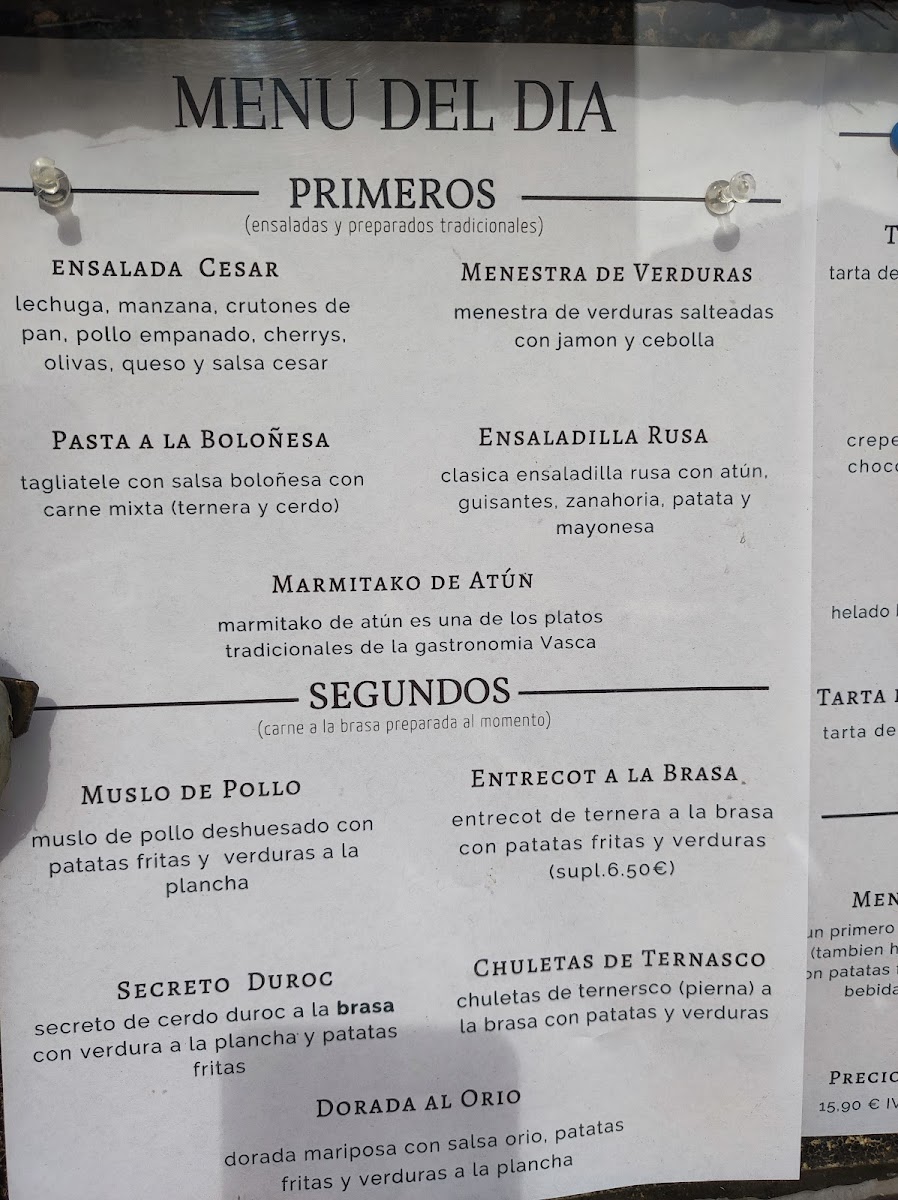 MENU DEL DIA
PRIMEROS
(ensaladas y preparados tradicionales)
ENSALADA CESAR
lechuga, manzana, crutones de
pan, pollo empanado, cherrys,
olivas, queso y salsa cesar
MENESTRA DE VERDURAS
menestra de verduras salteadas
con jamon y cebolla
PASTA A LA BOLOÑESA
tagliatele con salsa boloñesa con
carne mixta (ternera y cerdo)
ENSALADILLA RUSA
clasica ensaladilla rusa con atún,
guisantes, zanahoria, patata y
mayonesa
MARMITAKO DE ATÚN
marmitako de atún es una de los platos
tradicionales de la gastronomia Vasca
SEGUNDOS
(carne a la brasa preparada al momento)
MUSLO DE POLLO
muslo de pollo deshuesado con
patatas fritas y verduras a la
plancha
ENTRECOT A LA BRASA
entrecot de ternera a la brasa
con patatas fritas y verduras
(supl.6.50€)
SECRETO DUROC
secreto de cerdo duroc a la brasa
con verdura a la plancha y patatas
fritas
CHULETAS DE TERNASCO
chuletas de ternersco (pierna) a
la brasa con patatas y verduras
DORADA AL ORIO
dorada mariposa con salsa orio, patatas
fritas y verduras a la plancha
tarta de
crepe
helado
TARTA
tarta de
primero
(tambien
patatas
bebida
15.90 €